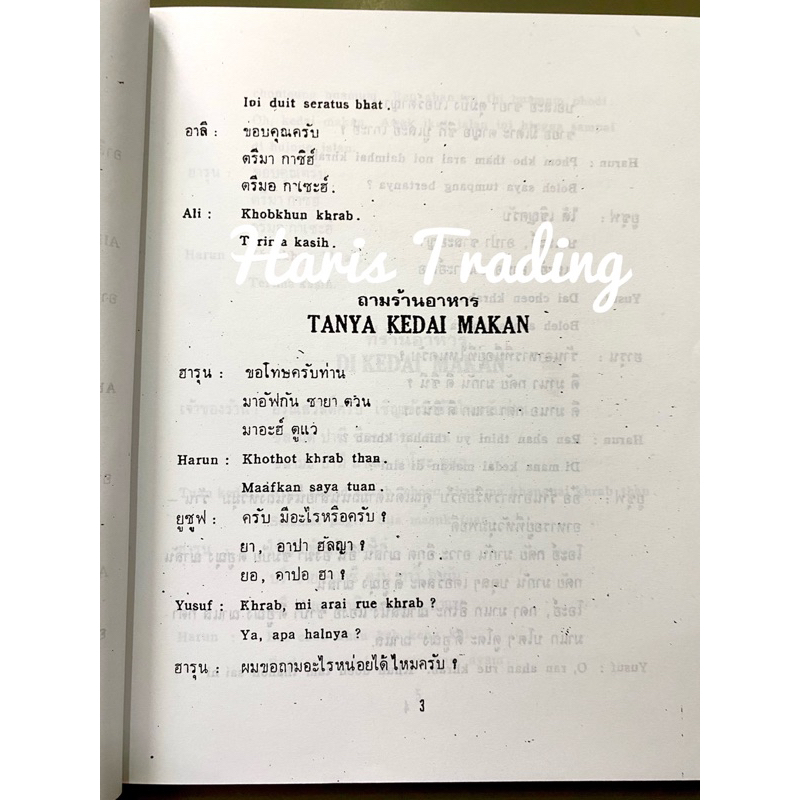 Ini duit seratus bhat.
อาลี : ขอบคุณครับ
ตรีมา กาซิฮ์
ตรีมอ กาเซะฮ์.
Ali : Khobkhun khrab.
Terima kasih.
Haris Trading
ถามร้านอาหาร
TANYA KEDAI MAKAN
ฮารุน : ขอโทษครับท่าน
มาอัฟกัน ซายา ตวน
มาอะฮ์ ตูแว
Harun : Khothot khrab than.
Maafkan saya tuan.
ยูซูฟ : ครับ มีอะไรหรือครับ ?
ยา, อาปา ฮัลญา ?
ยอ, อาปอ ฮา ?
Yusuf : Khrab, mi arai rue khrab ?
Ya, apa halnya ?
ฮารุน : ผมขอถามอะไรหน่อยได้ไหมครับ ?
3